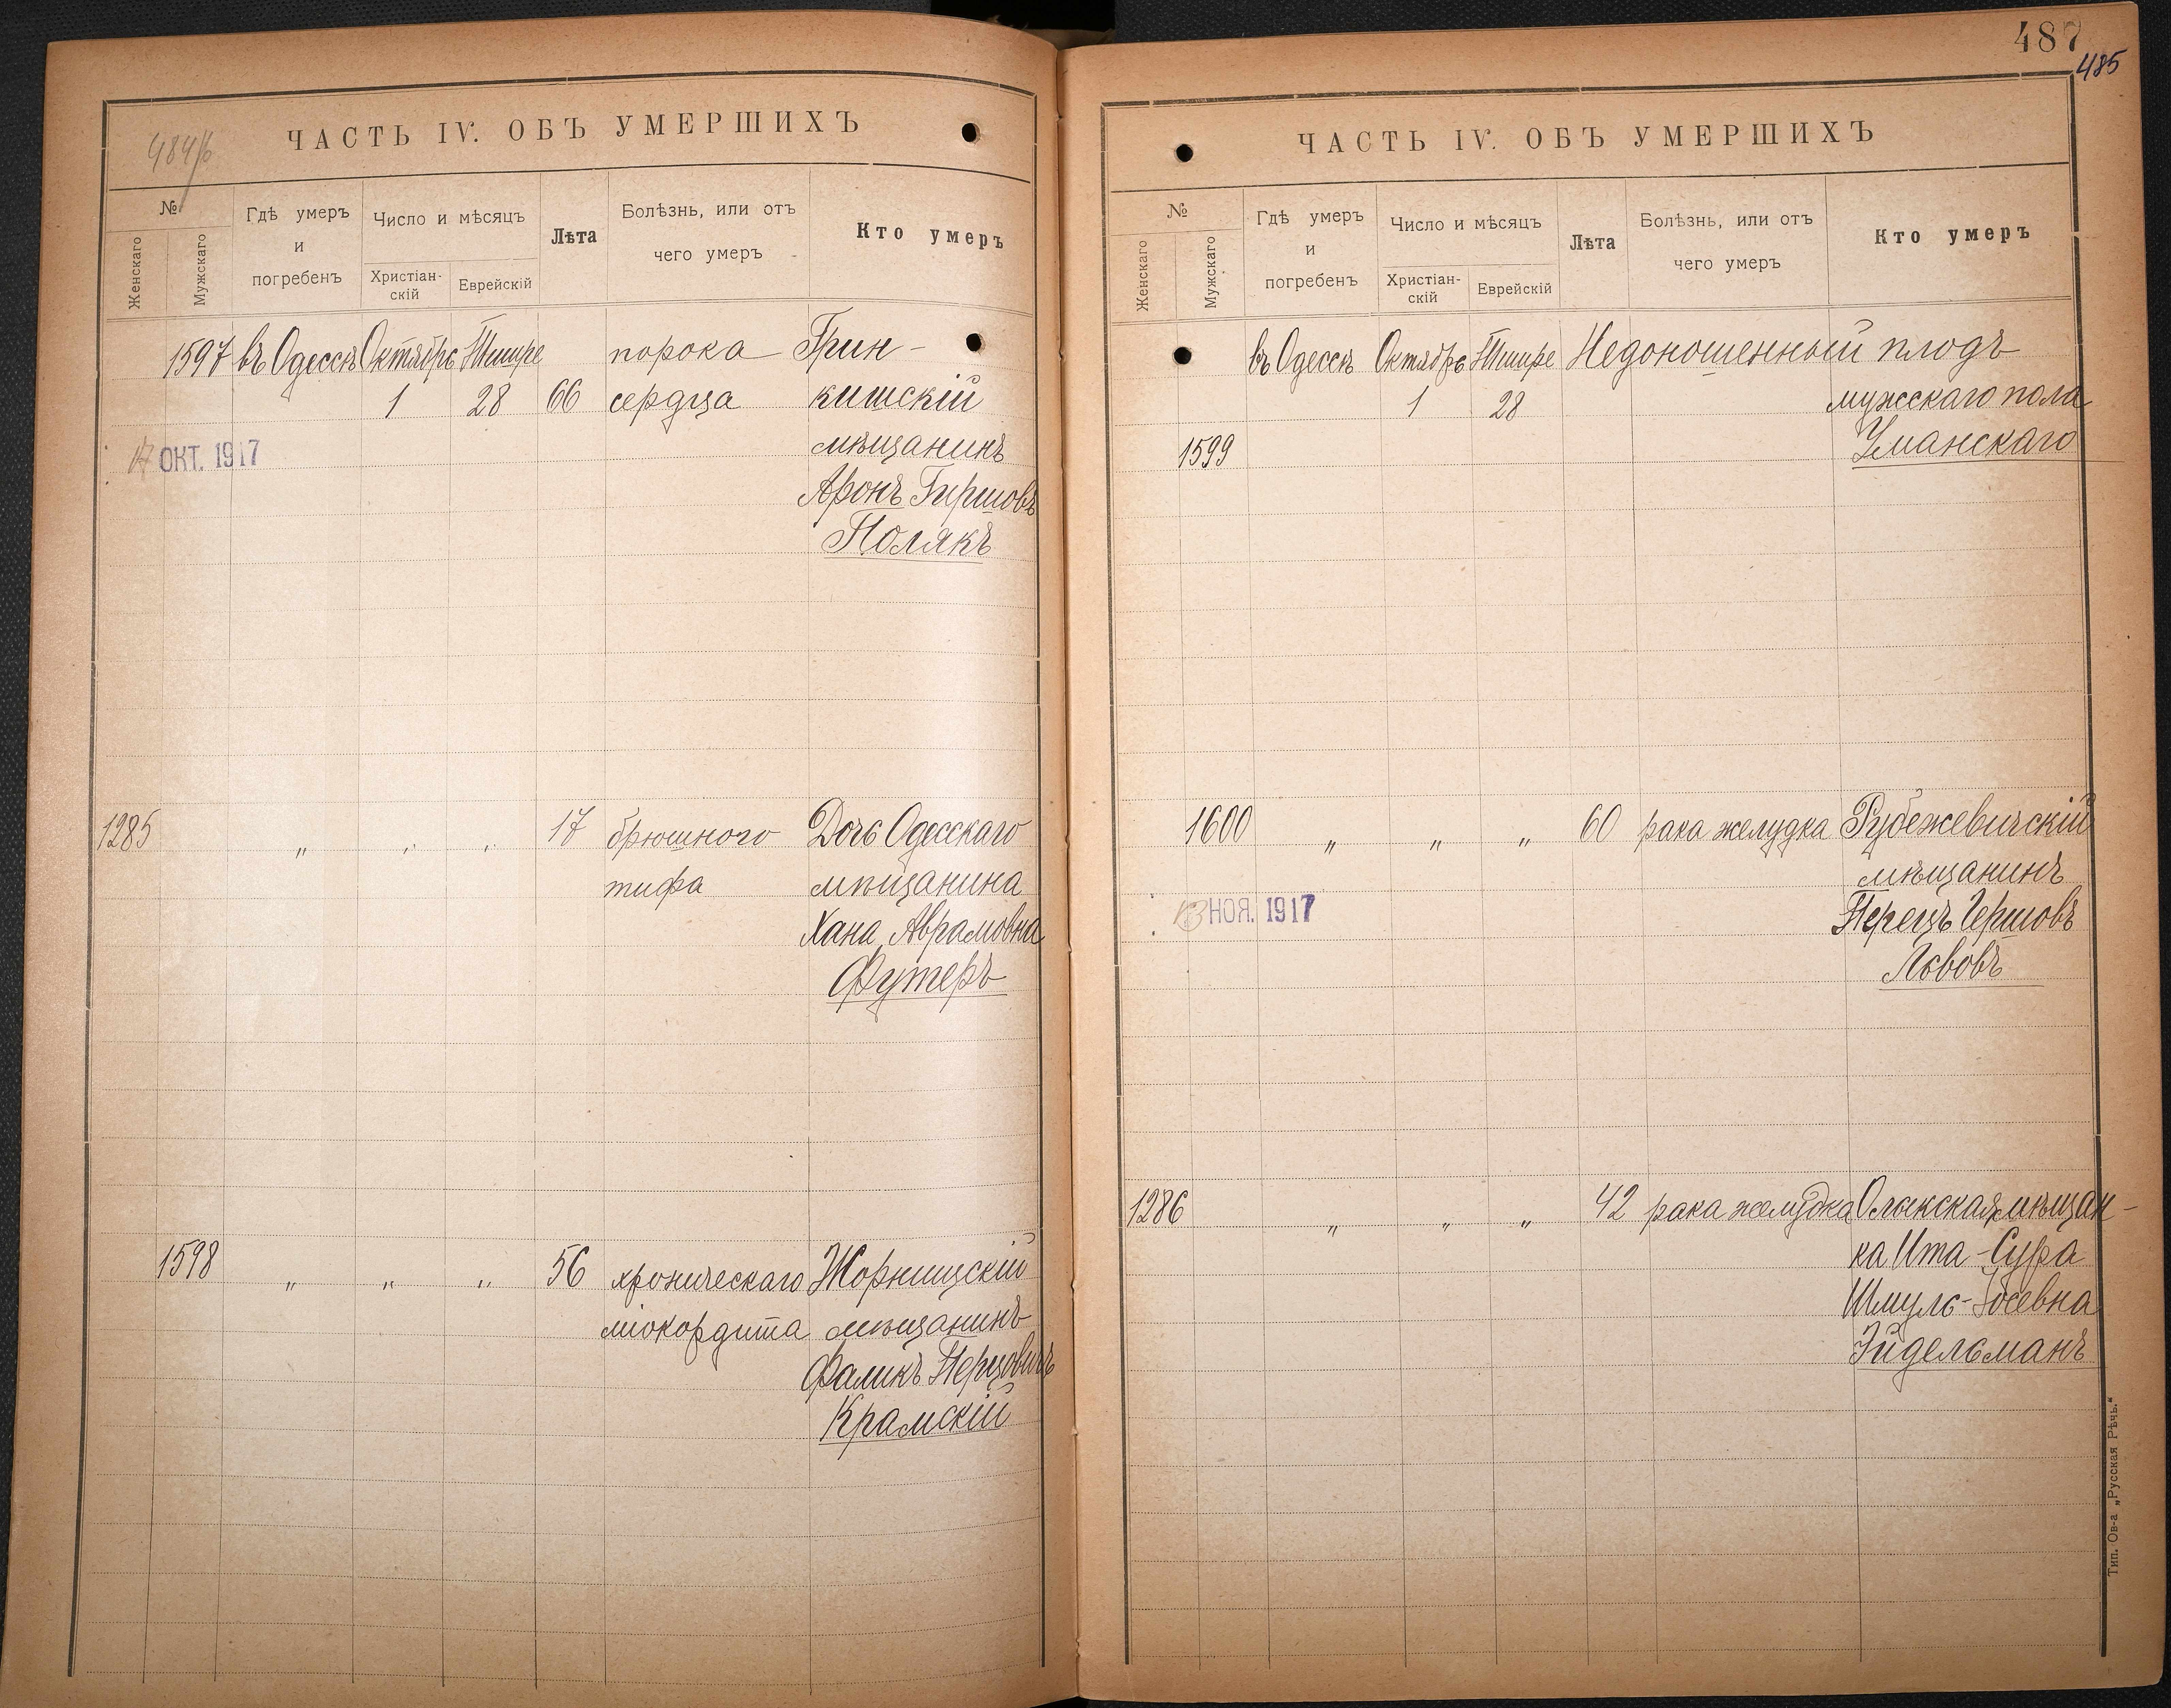 484/б
ЧАСТЬ IV. ОБЪ УМЕРШИХЪ
№
Женскаго
Мужскаго
Гдѣ умеръ
и
погребенъ
Число и мѣсяцъ
Христіан-
скій
Еврейскій
Лѣта
Болѣзнь, или отъ
чего умеръ
Кто умеръ
1597 въ Одессѣ Октябрь Тишре порока Грин-
1 28 66 сердца кишскій
мѣщанинъ
17 ОКТ. 1917
Аронъ Гиршовъ
Полякъ
1285 „ „ „ 17 брюшного Дочь Одесскаго
тифа мѣщанина
Хана Аврамовна
Футеръ
1598 „ „ „ 56 хроническаго Жорнищскій
міокордита мѣщанинъ
Фаликъ Перцовичъ
Крамскій
487
485
ЧАСТЬ IV. ОБЪ УМЕРШИХЪ
№
Женскаго
Мужскаго
Гдѣ умеръ
и
погребенъ
Число и мѣсяцъ
Христіан-
скій
Еврейскій
Лѣта
Болѣзнь, или отъ
чего умеръ
Кто умеръ
въ Одессѣ Октябрь Тишре Недоношенный плодъ
1 28 мужескаго пола
1599 Уманскаго
1600 „ „ „ 60 рака желудка Рубежевичскій
мѣщанинъ
13 НОЯ. 1917
Перецъ Гершовъ
Львовъ
1286 „ „ „ 42 рака желудка Олыкская мѣщан-
ка Ита-Сура
Шмуль-Іосевна
Эйдельманъ
Тип. Ов-а „Русская Рѣчь.“